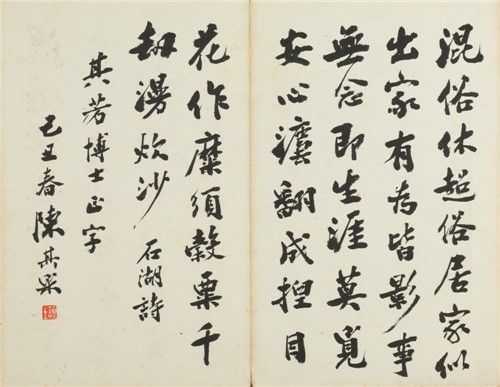 混俗休超俗居家似
出家有為皆影事
無念即生涯莫覓
安心灋翻成捏目
花作糜須穀粟千
劫漫炊沙 石湖詩
其若博士正字
己丑春陳其采